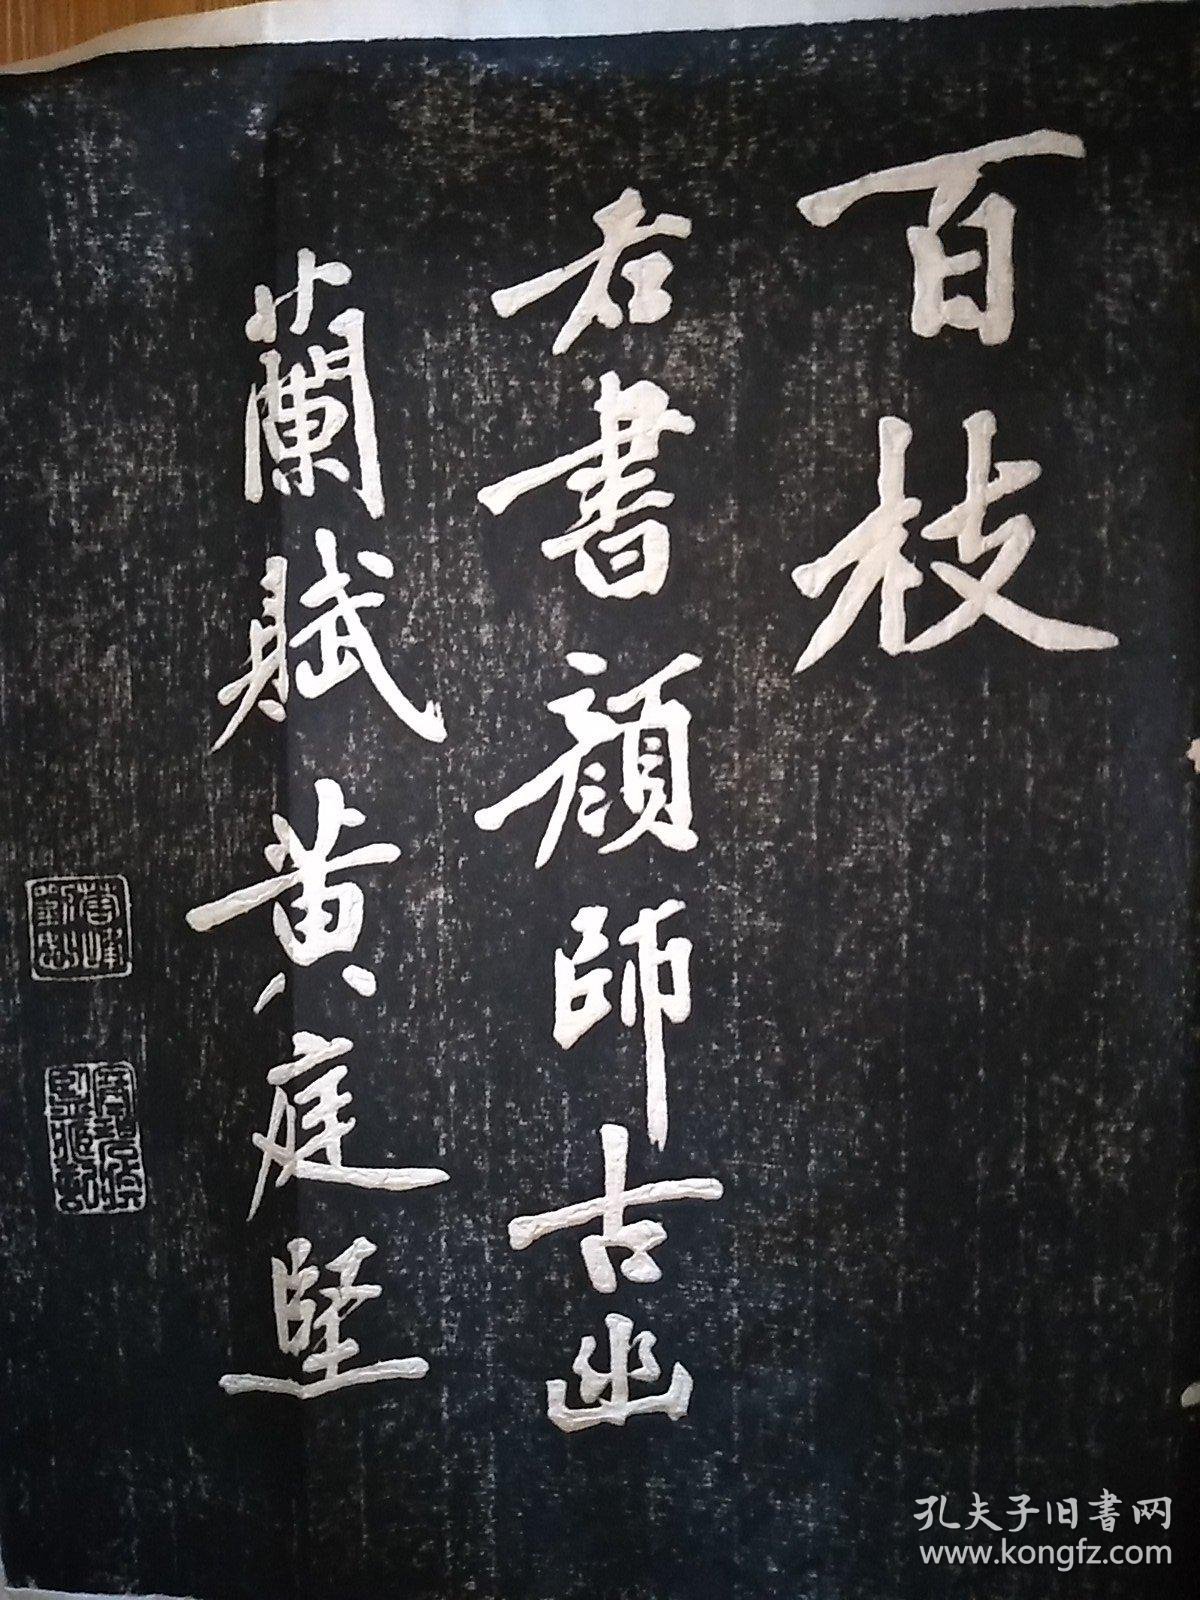 百枝
右書顏師古幽
蘭賦黃庭堅
孔夫子旧书网
www.kongfz.com